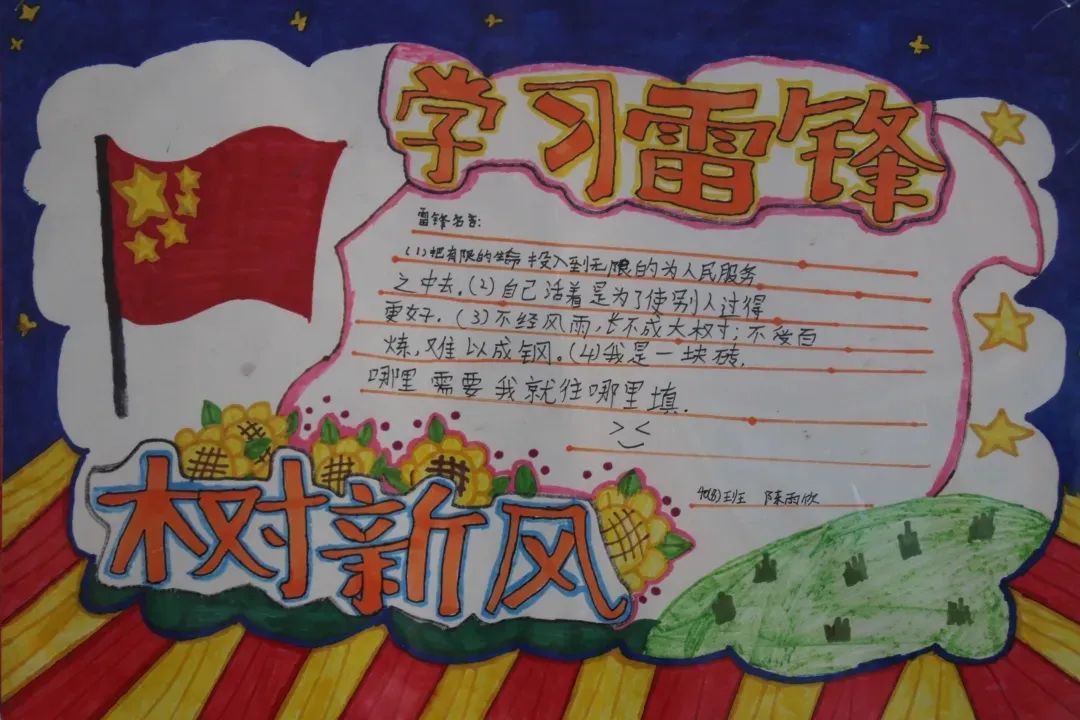 学习雷锋
雷锋名言:
(1)把有限的生命投入到无限的为人民服务
之中去.(2)自己活着是为了使别人过得
更好.(3)不经风雨,长不成大树;不受百
炼,难以成钢。(4)我是一块砖,
哪里需要我就往哪里填.
树新风
班 陈雨欣